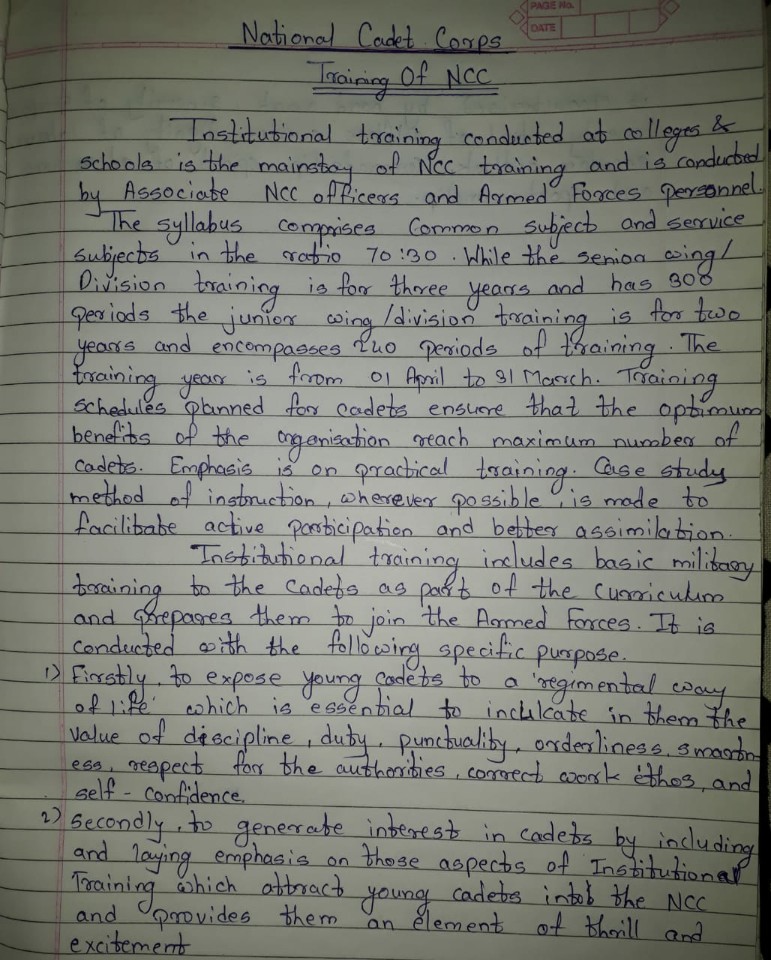 PAGE No.
DATE
National Cadet Corps
Training Of NCC
Institutional training conducted at colleges &
schools is the mainstay of NCC training and is conducted
by Associate NCC officers and Armed Forces personnel.
The syllabus comprises Common subject and service
subjects in the ratio 70:30. While the senior wing/
Division training is for three years and has 300
periods the junior wing/division training is for two
years and encompasses 240 periods of training. The
training year is from 01 April to 31 March. Training
schedules planned for cadets ensure that the optimum
benefits of the organisation reach maximum number of
cadets. Emphasis is on practical training. Case study
method of instruction, wherever possible, is made to
facilitate active participation and better assimilation.
Institutional training includes basic military
training to the cadets as part of the curriculum
and prepares them to join the Armed Forces. It is
conducted with the following specific purpose.
1) Firstly, to expose young cadets to a 'regimental way
of life' which is essential to inculcate in them the
value of discipline, duty, punctuality, orderliness, smartn
ess, respect for the authorities, correct work ethos, and
self - confidence.
2) Secondly, to generate interest in cadets by including
and laying emphasis on those aspects of Institutional
Training which attract young cadets into the NCC
and provides them an element of thrill and
excitement